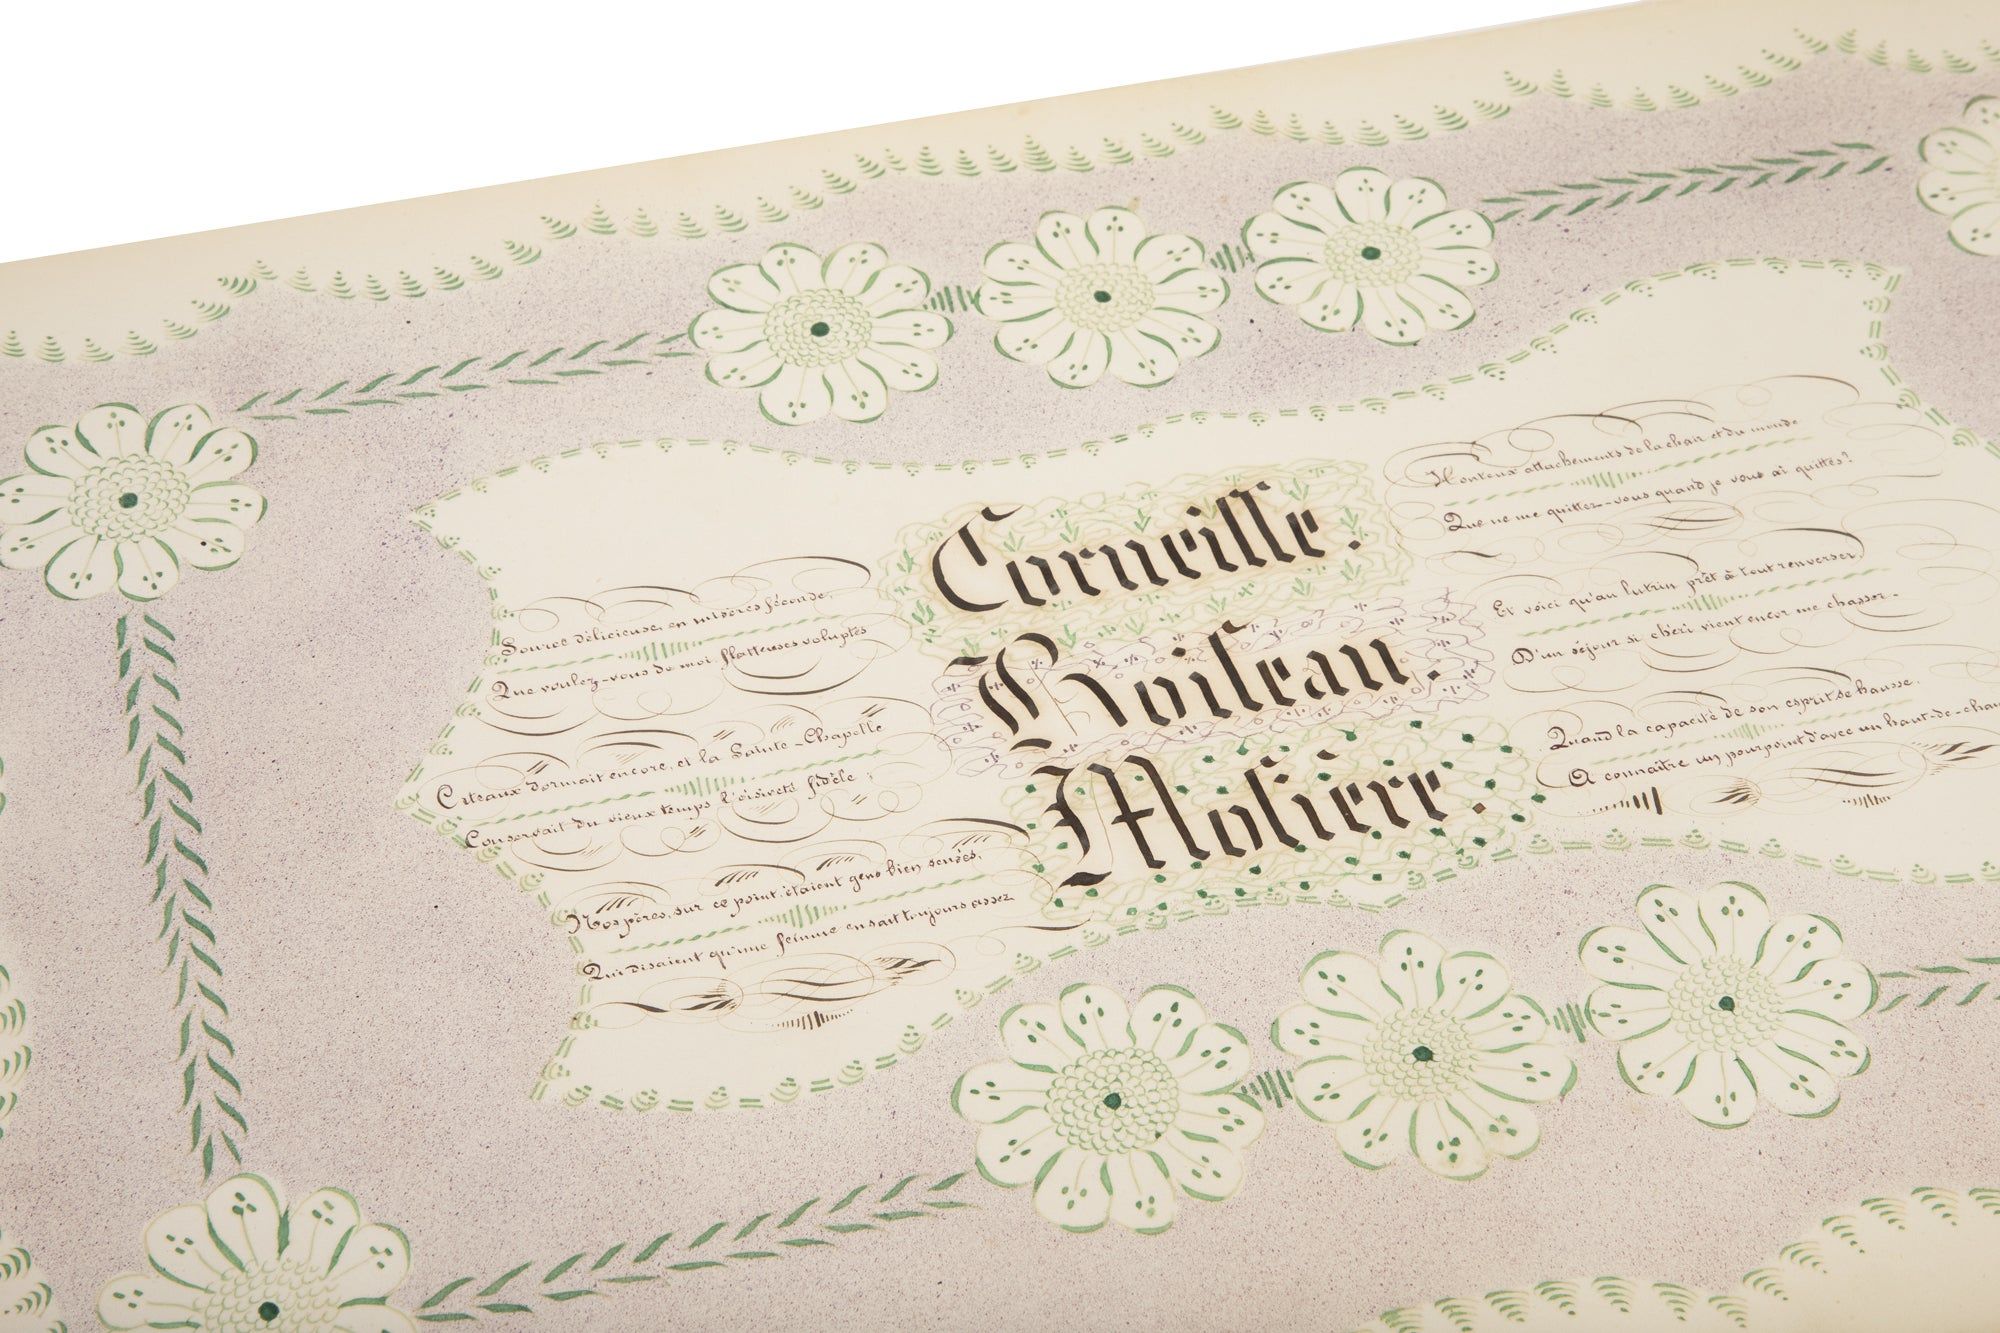 Corneille.
Source délicieuse, en misères féconde,
Que voulez-vous de moi, flatteuses voluptés
Honteux attachements de la chair et du monde
Que ne me quittez-vous quand je vous ai quittés?
Boileau.
Citeaux dormait encore, et la Sainte-Chapelle
Conservait du vieux temps l'oisiveté fidèle;
Et voici qu'un lutrin prêt à tout renverser
D'un séjour si chéri vient encor me chasser.
Molière.
Nos pères, sur ce point, étaient gens bien sensés,
Qui disaient qu'une femme en sait toujours assez
Quand la capacité de son esprit se hausse.
A connaître un pourpoint d'avec un haut-de-